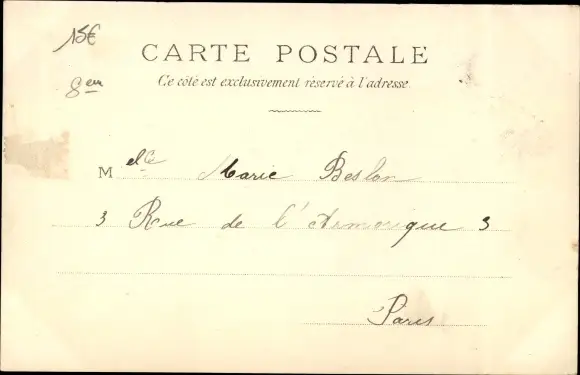 15€
8em
CARTE POSTALE
Ce côté est exclusivement réservé à l'adresse.
Melle Marie Beslon
3 Rue de l'Armorique 3
Paris